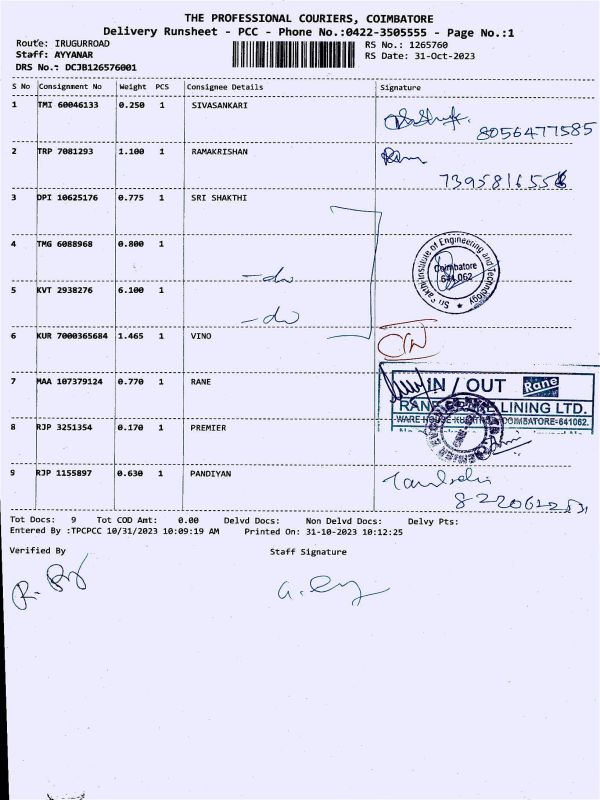 THE PROFESSIONAL COURIERS, COIMBATORE
Delivery Runsheet - PCC - Phone No.:0422-3505555 - Page No.:1
Route: IRUGURROAD
RS No.: 1265760
Staff: AYYANAR
RS Date: 31-Oct-2023
DRS No.: DCJB126576001
S No Consignment No Weight PCS Consignee Details Signature
1 TMI 60046133 0.250 1 SIVASANKARI
8056477585
2 TRP 7081293 1.100 1 RAMAKRISHAN
3 DPI 10625176 0.775 1 SRI SHAKTHI
4 TMG 6088968 0.800 1
Institute of Engineering and Technology
Coimbatore
641 062
5 KVT 2938276 6.100 1
6 KUR 7000365684 1.465 1 VINO
7 MAA 107379124 0.770 1 RANE
IN / OUT Rane
LINING LTD.
COIMBATORE-641062.
8 RJP 3251354 0.170 1 PREMIER
9 RJP 1155897 0.630 1 PANDIYAN
Tot Docs: 9 Tot COD Amt: 0.00 Delvd Docs: Non Delvd Docs: Delvy Pts:
Entered By :TPCPCC 10/31/2023 10:09:19 AM Printed On: 31-10-2023 10:12:25
Verified By Staff Signature